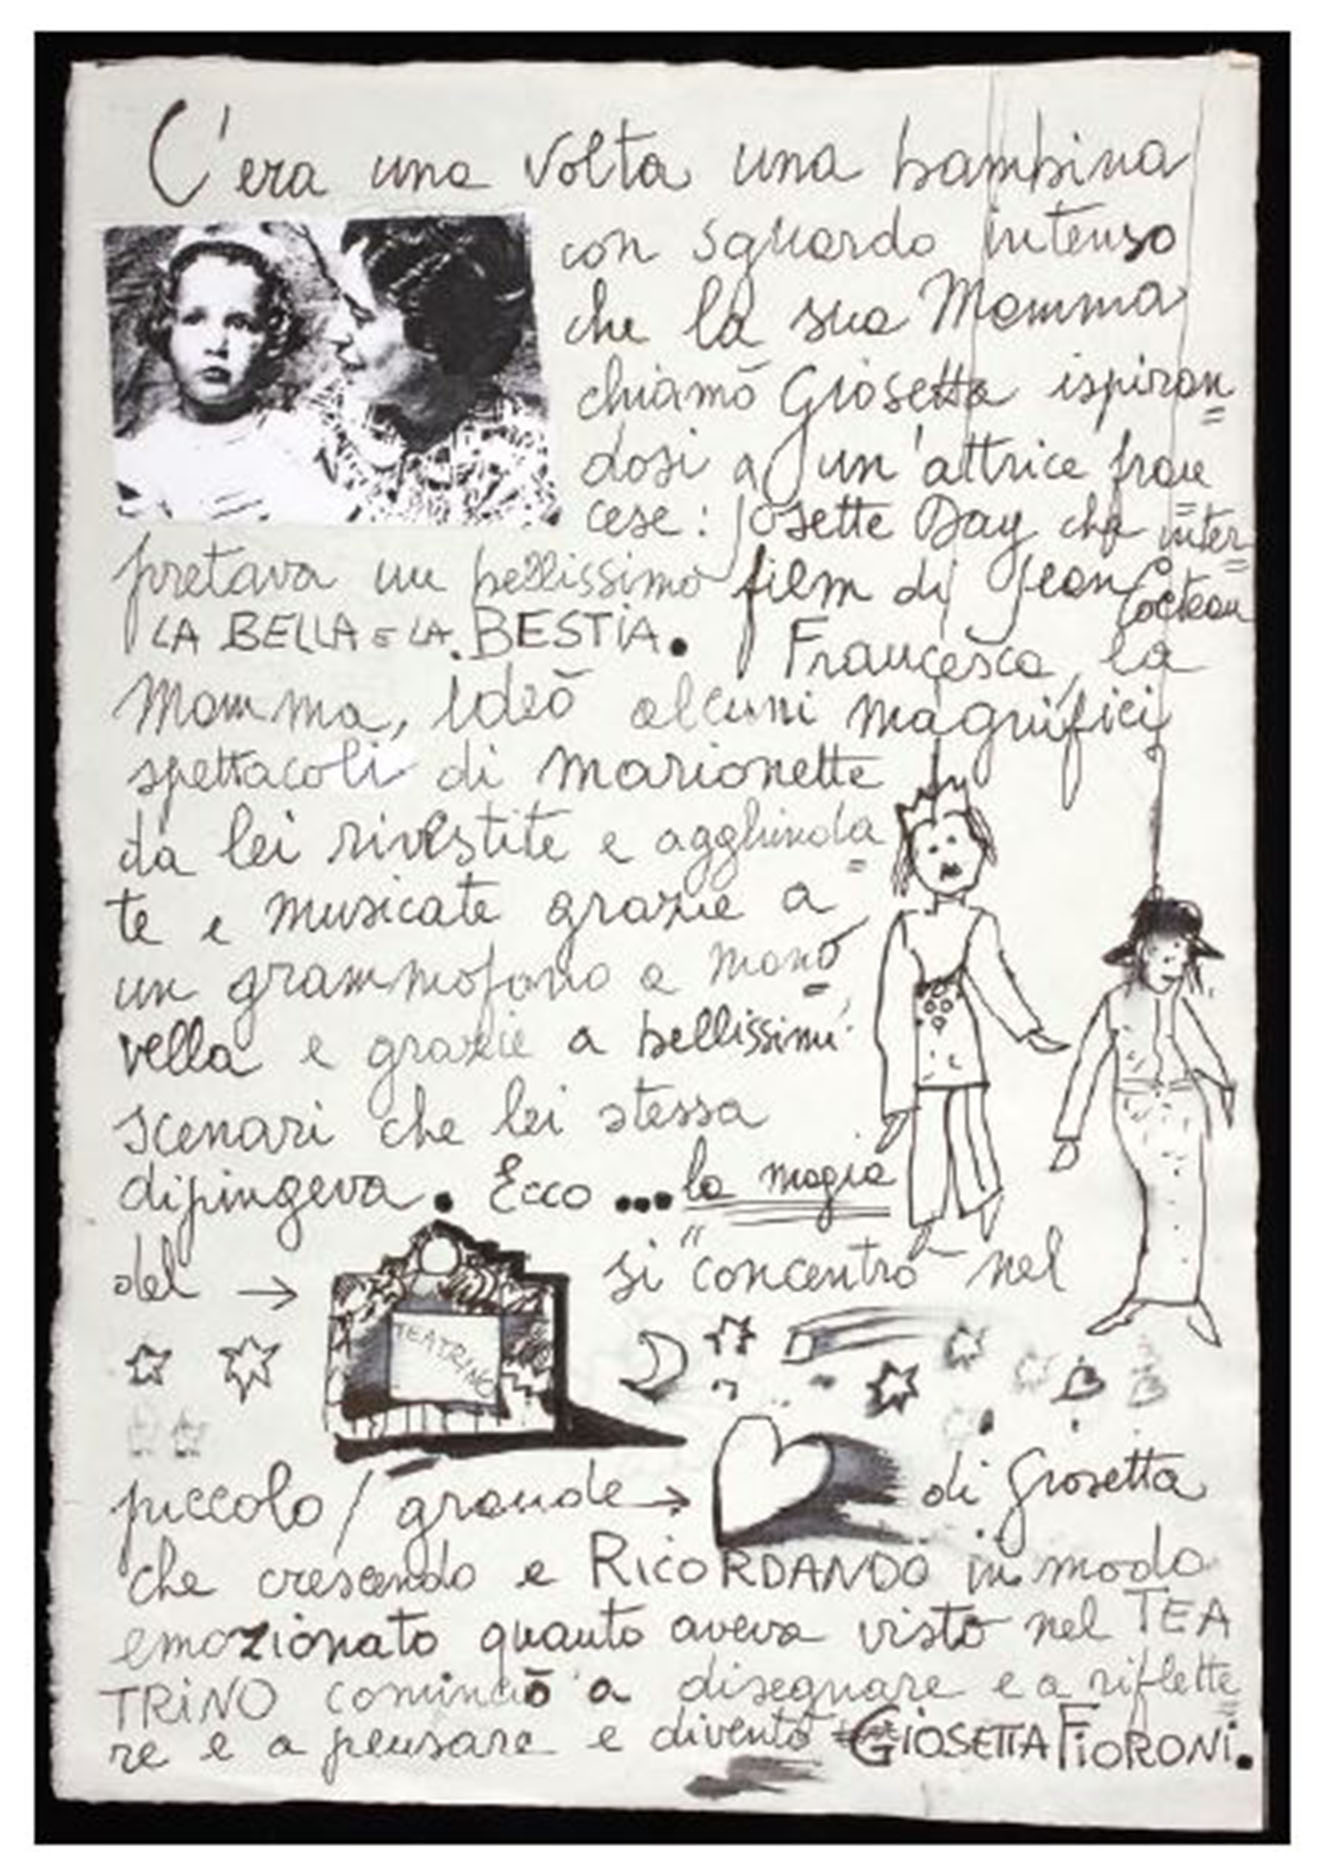 C'era una volta una bambina
con sguardo intenso
che la sua Mamma
chiamò Giosetta ispiran=
dosi a un'attrice fran=
cese: Josette Day che inter=
pretava un bellissimo film di Jean Cocteau
LA BELLA E LA BESTIA. Francesca, la
Mamma, ideò alcuni magnifici
spettacoli di marionette
da lei rivestite e agghinda=
te e musicate grazie a
un grammofono a mano=
vella e grazie a bellissimi
scenari che lei stessa
dipingeva. Ecco ... la magia
del → TEATRINO si "concentrò" nel
piccolo / grande → di Giosetta
che crescendo e RICORDANDO in modo
emozionato quanto aveva visto nel TEA
TRINO cominciò a disegnare e a riflette=
re e a pensare e diventò GIOSETTA FIORONI.